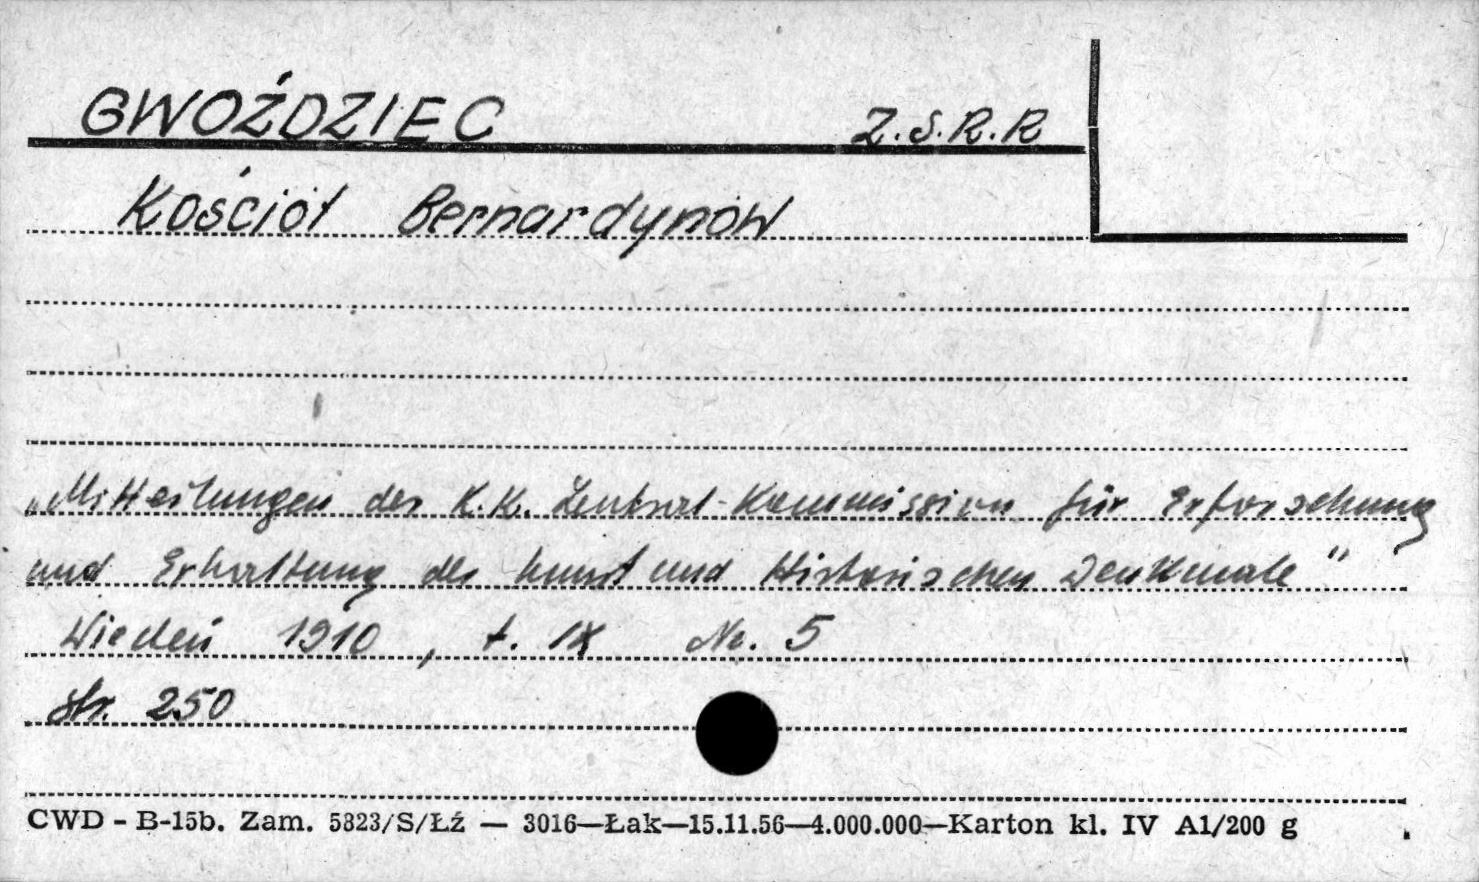 GWOŹDZIEC Z.S.R.R
Kościół Bernardynów
„Mitteilungen der K.K. Zentral-Kommission für Erforschung
und Erhaltung der kunst und Historischen Denkmale"
Wiedeń 1910, t. IX Nr. 5
str. 250
CWD - B-15b. Zam. 5823/S/Łź — 3016—Łak—15.11.56—4.000.000—Karton kl. IV A1/200 g